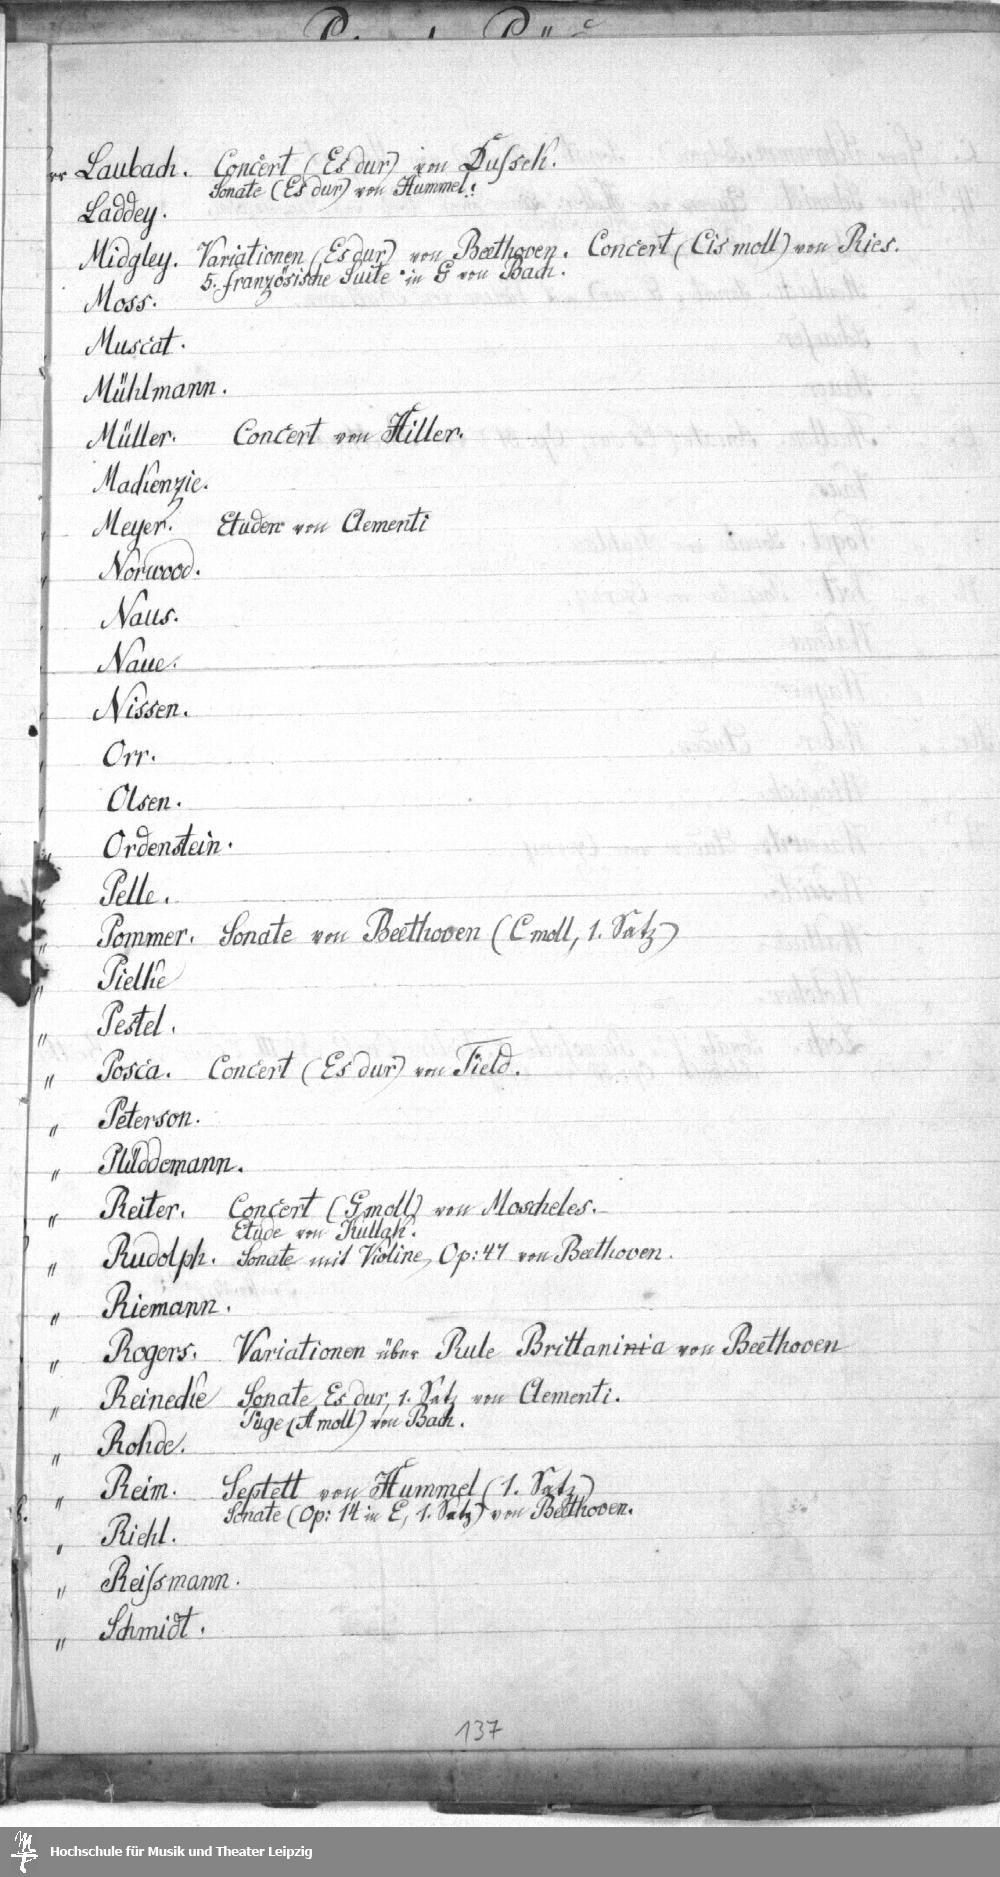 Laubach. Concert (Es dur) von Dussek.
Sonate (Es dur) von Hummel.
Laddey.
Midgley. Variationen (Es dur) von Beethoven. Concert (Cis moll) von Ries.
5. französische Suite in G von Bach.
Moss.
Muscat.
Mühlmann.
Müller. Concert von Hiller.
Mackenzie.
Meyer. Etuden von Clementi
Norwood.
Naus.
Naue.
Nissen.
Orr.
Olsen.
Ordenstein.
Pelle.
" Pommer. Sonate von Beethoven (C moll, 1. Satz)
" Pielke
" Pestel.
" Posca. Concert (Es dur) von Field.
" Peterson.
" Plüddemann.
" Reiter. Concert (G moll) von Moscheles.
Etude von Kullak.
" Rudolph. Sonate mit Violine, Op: 47 von Beethoven.
" Riemann.
" Rogers. Variationen über Rule Brittaninia von Beethoven
" Reinecke Sonate Es dur, 1. Satz von Clementi.
Fuge (A moll) von Bach.
" Rohde.
" Reim. Septett von Hummel (1. Satz)
Sonate (Op: 14 in E, 1. Satz) von Beethoven.
" Riehl.
" Reissmann.
" Schmidt.
137
Hochschule für Musik und Theater Leipzig